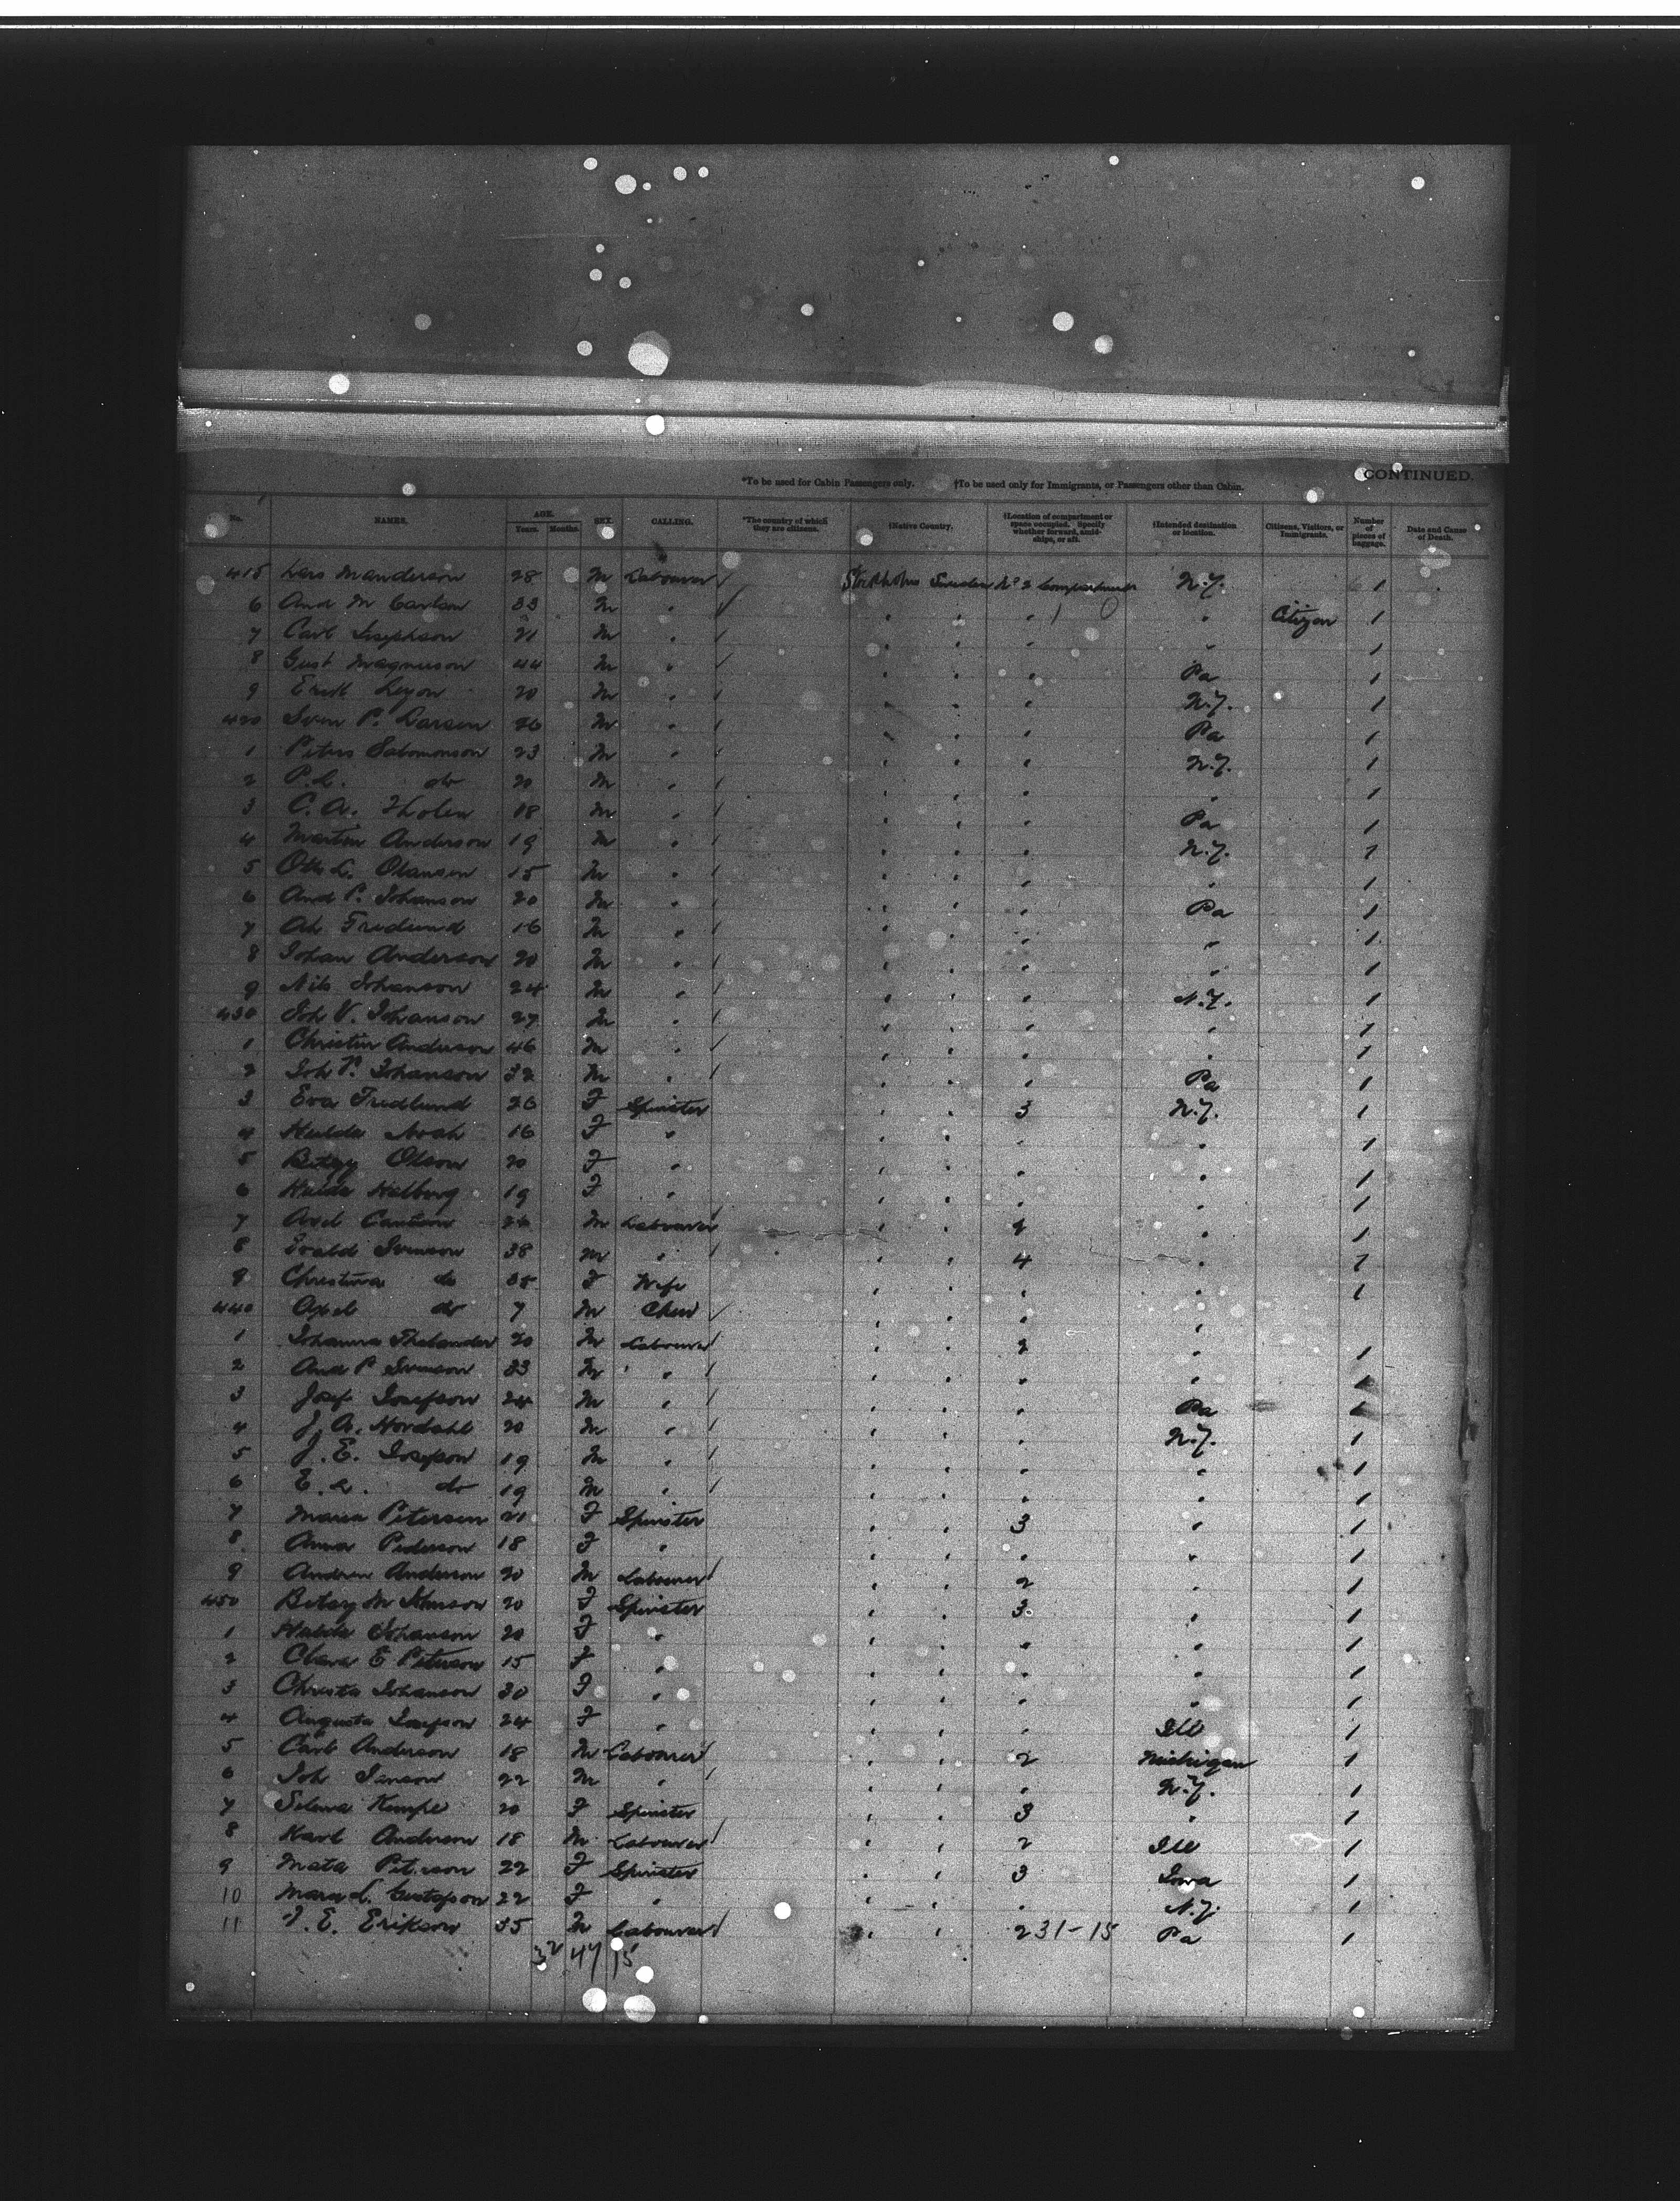 CONTINUED.
*To be used for Cabin Passengers only. †To be used only for Immigrants, or Passengers other than Cabin.
No. NAMES. AGE. Years. Months. SEX. CALLING. *The country of which they are citizens. †Native Country. †Location of compartment or space occupied. Specify whether forward, amidships, or aft. †Intended destination or location. Citizens, Visitors, or Immigrants. Number of pieces of baggage. Date and Cause of Death.
415 Lars Manderson 28 M Labourer Stockholm Sweden No 2 Compartment N.Y. 1
6 And M Carlson 33 M " " " " " Citizen 1
7 Carl Josephson 21 M " " " " " 1
8 Gust Magnuson 44 M " " " " Pa 1
9 Erik 20 M " " " " N.Y. 1
420 Sven P. Larsen 26 M " " " " Pa 1
1 Peters Salomonson 23 M " " " " N.Y. 1
2 do 20 M " " " " " 1
3 C. A. Tholen 18 M " " " " Pa 1
4 Martin Anderson 19 M " " " " N.Y. 1
5 Otto L. Olausen 15 M " " " " " 1
6 And P. Johanson 20 M " " " " Pa 1
7 Fredlund 16 M " " " " " 1
8 Johan Anderson 20 M " " " " " 1
9 Nils Johanson 24 M " " " " N.Y. 1
430 Joh V. Johanson 27 M " " " " " 1
1 Christin Anderson 46 M " " " " " 1
2 Joh P. Johanson 32 M " " " " Pa 1
3 Eva Fredlund 26 F Spinster " " 3 N.Y. 1
4 Hulda Noah 16 F " " " " " 1
5 Betsy Olson 20 F " " " " " 1
6 Hulda Halberg 19 F " " " " " 1
7 Axel M Labourer " " "
8 Evald Svenson 38 M " " " 4 "
9 Christina do 35 F Wife " " " " 1
440 Axel do 7 M " " " "
1 Johanna Thelander 20 M Labourer " " 2 " 1
2 And P Svenson 33 M " " " " " 1
3 Josef Josefson 24 M " " " " Pa 1
4 J. A. Nordahl 20 M " " " " N.Y. 1
5 J. E. Josefson 19 M " " " " " 1
6 do 19 M " " " " " 1
7 Maria Peterson 21 F Spinster " " 3 " 1
8 Anna Pederson 18 F " " " " " 1
9 Andrew Anderson 20 M Labourer " " 2 " 1
450 Betsy M 20 F Spinster " " 3 " 1
1 Hulda Johanson 20 F " " " " " 1
2 Clara E Peterson 15 F " " " " " 1
3 Christa Johanson 30 F " " " " " 1
4 Augusta Josefson 24 F " " " " Ill 1
5 Carl Anderson 18 M Labourer " " 2 Michigan 1
6 Joh 22 M " " " " N.Y. 1
7 Selma Kempe 20 F Spinster " " 3 " 1
8 Karl Anderson 18 M Labourer " " 2 Ill 1
9 Mata Peterson 22 F Spinster " " 3 Iowa 1
10 Mary L. Gustafson 22 F " " " " N.Y. 1
11 J. E. Erikson 35 M Labourer " " 2 31-15 Pa 1
32 47 15